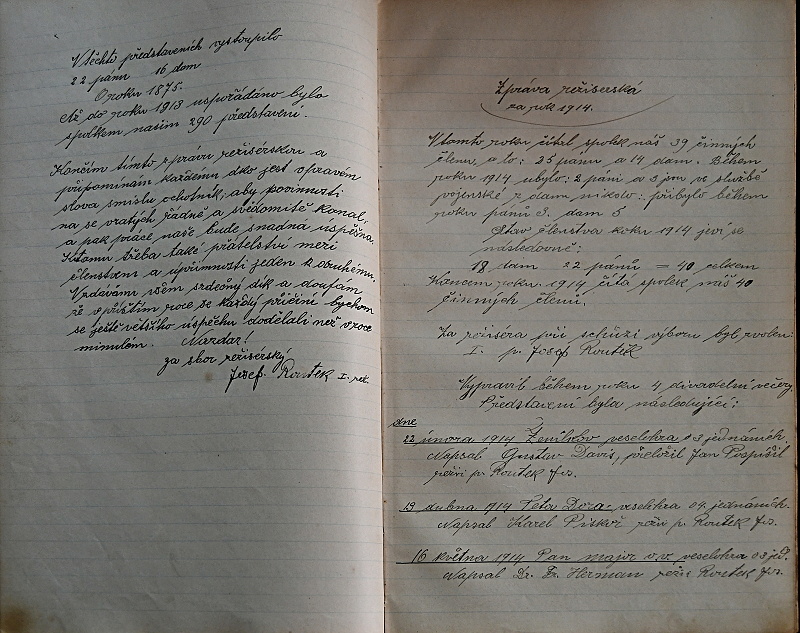 V těchto představeních vystoupilo
22 pánů 16 dam
O roku 1875.
Až do roku 1913 uspořádáno bylo
spolkem naším 290 představení.
Končím tímto zprávu režisérskou a
připomínám každému kdo jest v pravém
slova smyslu ochotník, aby povinnosti
na se vzatých řádně a svědomitě konal,
a pak práce naše bude snadná úspěšna.
K tomu třeba také přátelství mezi
členstvem a upřímnosti jeden k druhému.
Vzdávám všem srdečný dík a doufám
že v příštím roce se každý přičiní bychom
se ještě většího úspěchu dodělali než v roce
minulém. Nazdar!
za sbor režisérský
Josef Routek I. rež.
Zpráva režiserská
za rok 1914.
V tomto roku čítal spolek náš 39 činných
členů, a to: 25 pánů a 14 dam. Během
roku 1914 ubylo: 2 páni a 3 jsou ve službě
vojenské z dam nikdo: přibylo během
roku pánů 3. dam 5
Stav členstva koku 1914 jeví se
následovně:
18 dam 22 pánů = 40 celkem
Koncem roku 1914 čítá spolek náš 40
činných členů.
Za režiséra při schůzi výboru byl zvolen:
I. p. Josef Routek
Vypravil během roku 4 divadelní večery.
Představení byla následující:
dne
22 února 1914 Ženíchov veselohra o 3 jednáních.
Napsal Gustav Davis, přeložil Jan Pospíšil
režií p. Routek Jos.
19 dubna 1914 Teta Dora veselohra o 4. jednáních.
Napsal Karel Piskoř režie p. Routek Jos.
16 května 1914 Pan major v.v. veselohra o 3 jed.
Napsal Dr. Fr. Herman režie Routek Jos.